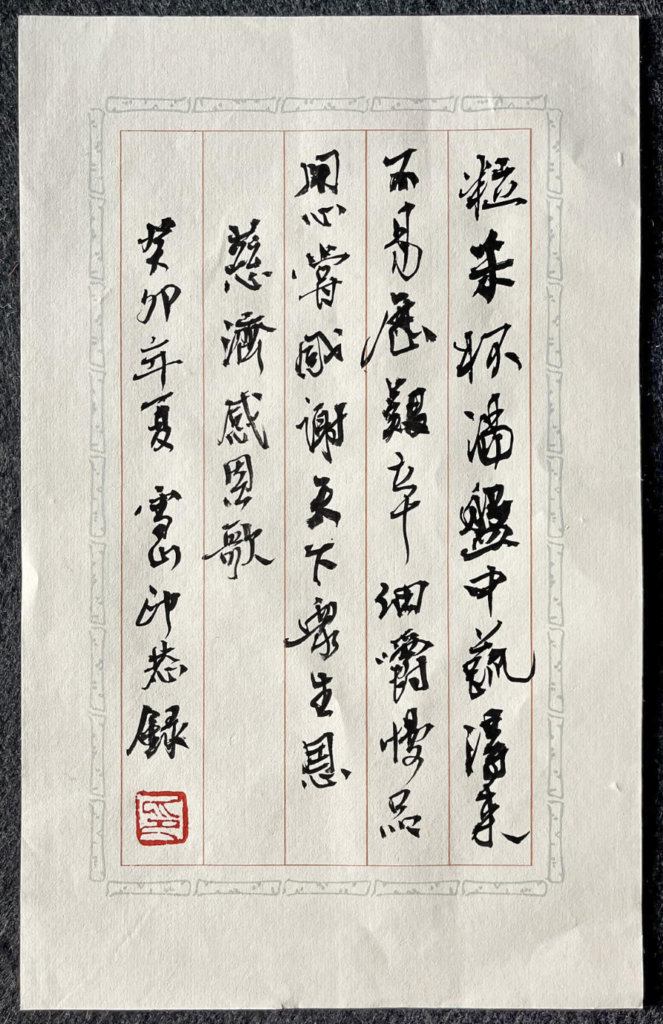 粒米杯湯盤中蔬得來
不易歷艱辛細嚼慢品
用心嘗感謝天下眾生恩
慈濟感恩歌
癸卯年夏 雪山印慈録